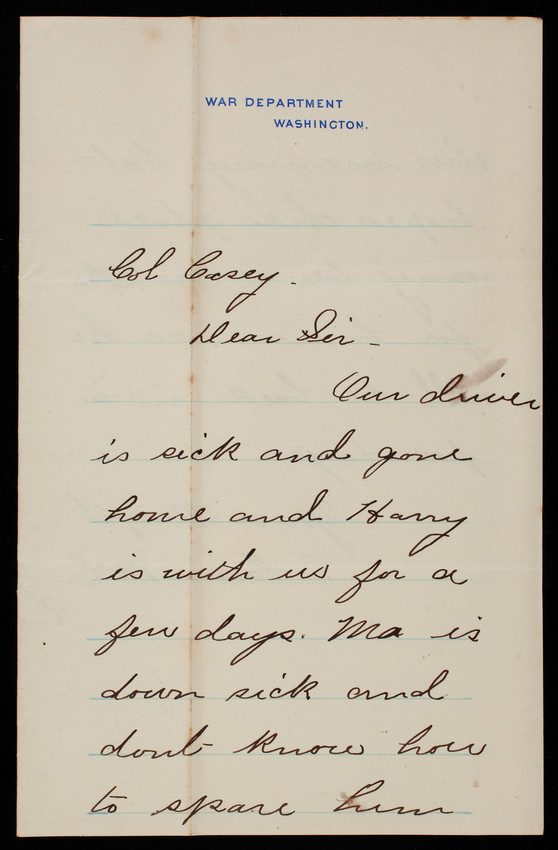 WAR DEPARTMENT
WASHINGTON.
Col Casey.
Dear Sir -
Our driver
is sick and gone
home and Harry
is with us for a
few days. Ma is
down sick and
dont know how
to spare him